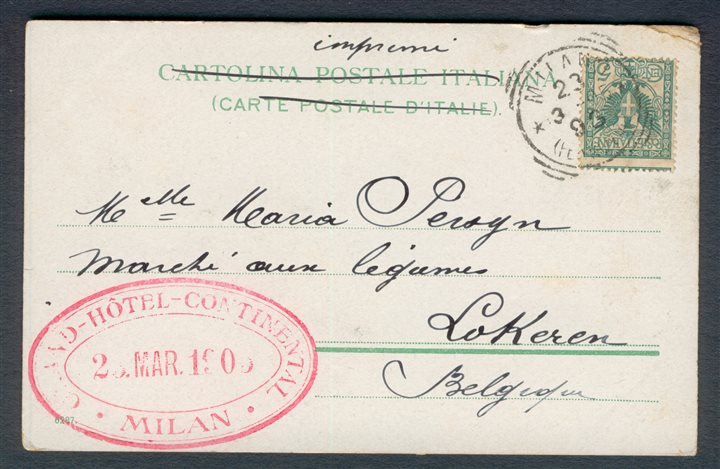 imprimé
CARTOLINA POSTALE ITALIANA
(CARTE POSTALE D'ITALIE).
MILANO
23
3
(FE
Melle Maria Persyn
Marché aux légumes
LoKeren
Belgique
GRAND-HÔTEL-CONTINENTAL
MAR. 190
• MILAN •
6287.